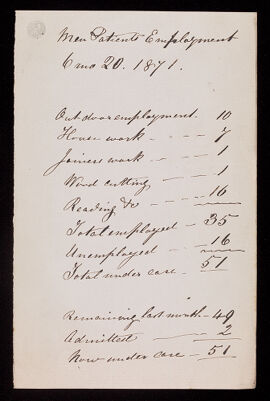 Men Patients Employment
6 mo 20. 1871.
Out door employment. 10
House work - - - 7
Joiners work - - - 1
Wood cutting - - - 1
Reading &c - - - 16
Total employed - 35
Unemployed - - 16
Total under care - 51
Remaining last month - 49
Admitted - 2
Now under care - 51